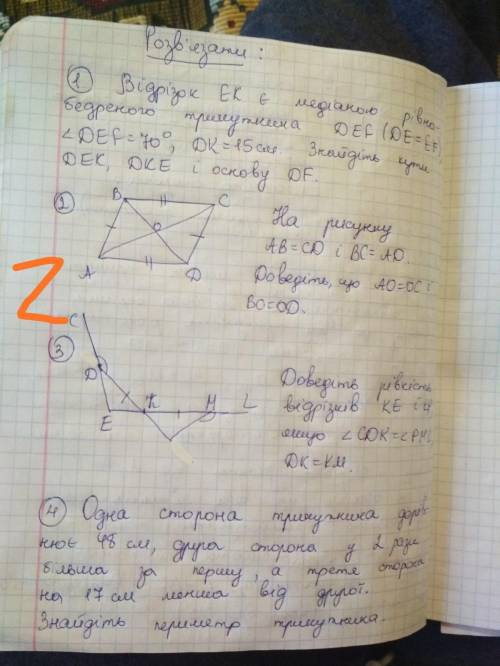 Розв'язати:
① Відрізок EK є медіаною рівно-
бедреного трикутника DEF (DE=EF),
∠DEF=70°, DK=15см. Знайдіть кути
DEK, DKE і основу DF.
②
B
C
O
A
D
На рисунку
AB=CD і BC=AD.
Доведіть, що AO=OC і
BO=OD.
Z
③
C
D
E
K
M
L
Доведіть рівність
відрізків KE і
якщо ∠CDK=∠PML
DK=KM.
④ Одна сторона трикутника дорів-
нює 48 см, друга сторона у 2 рази
більша за першу, а третя сторона
на 17 см менша від другої.
Знайдіть периметр трикутника.